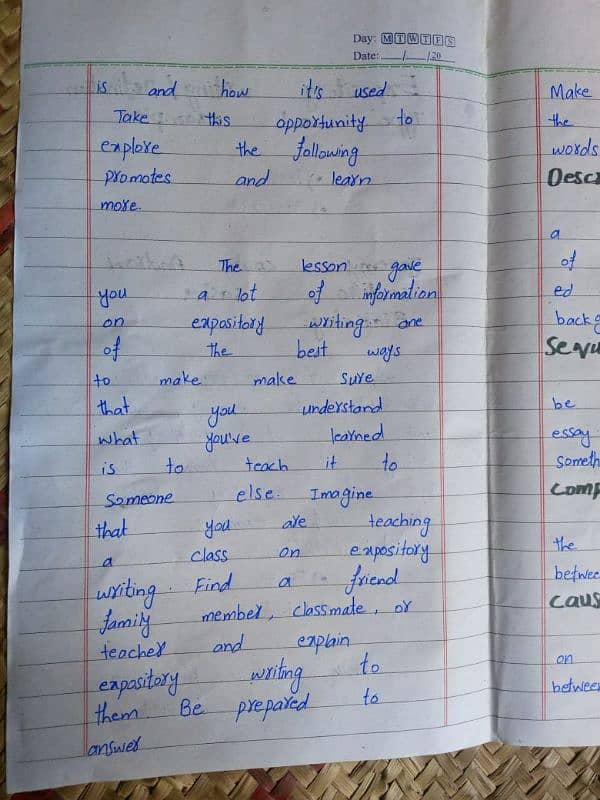 Day: M T W T F S
Date: __/__/20__
is and how it's used
Take this opportunity to
explore the following
promotes and learn
more.
The lesson gave
you a lot of information
on expository writing one
of the best ways
to make make sure
that you understand
what you've learned
is to teach it to
someone else. Imagine
that you are teaching
a class on expository
writing. Find a friend
family member, classmate, or
teacher and explain
expository writing to
them. Be prepared to
answer
Make
the
words
a
of
ed
be
essay
the
on
between